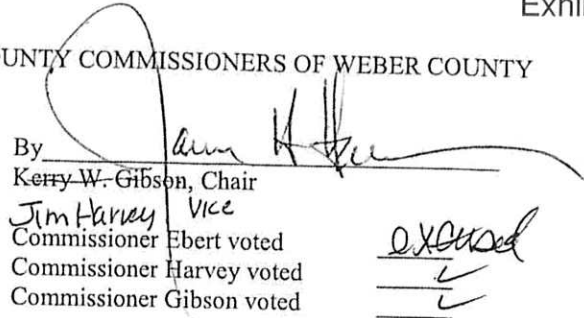 Exhi
OUNTY COMMISSIONERS OF WEBER COUNTY
By
Kerry W. Gibson, Chair
Jim Harvey Vice
Commissioner Ebert voted excused
Commissioner Harvey voted ✓
Commissioner Gibson voted ✓